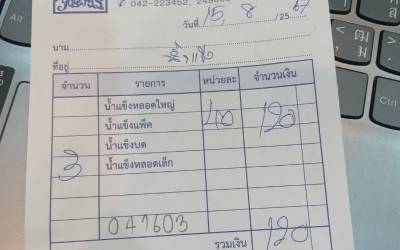 042-223452, 
วันที่ 15 / 8 / 2567
นาม
ที่อยู่
จำนวน รายการ หน่วยละ จำนวนเงิน
น้ำแข็งหลอดใหญ่
น้ำแข็งแพ็ค 40 120
น้ำแข็งบด
3 น้ำแข็งหลอดเล็ก
041603
รวมเงิน 120